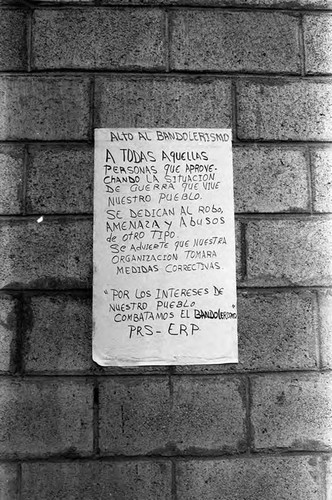 ALTO AL BANDOLERISMO
A TODAS AQUELLAS
PERSONAS QUE APROVE-
CHANDO LA SITUACION
DE GUERRA QUE VIVE
NUESTRO PUEBLO.
SE DEDICAN AL ROBO,
AMENAZA Y ABUSOS
de OTRO TIPO.
Se ADVIERTE QUE NUESTRA
ORGANIZACION TOMARA
MEDIDAS CORRECTIVAS.
"POR LOS INTERESES DE
NUESTRO PUEBLO
COMBATAMOS EL BANDOLERISMO"
PRS-ERP